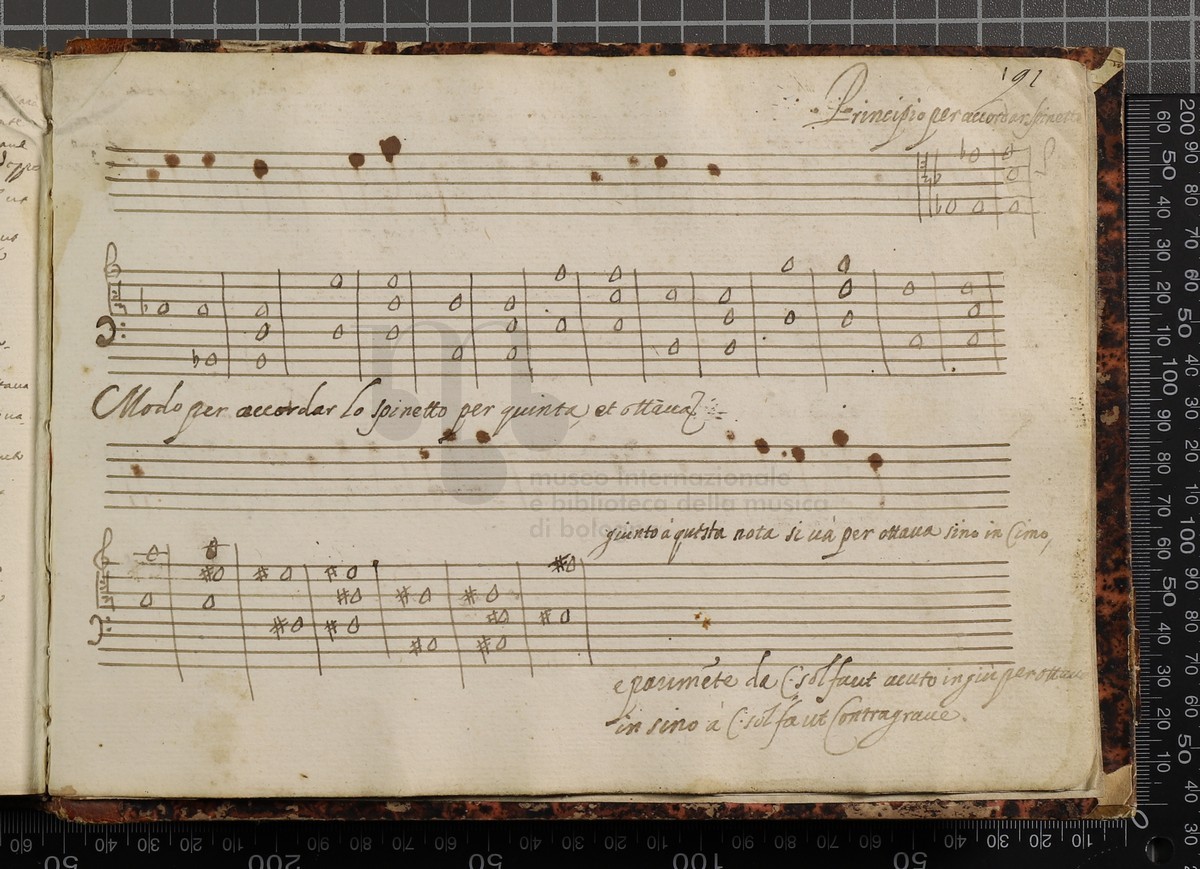 191
Principio per accordar spinetto
Modo per accordar lo spinetto per quinta, et ottaua
museo internazionale
e biblioteca della musica
di bologna
giunto à questa nota si uà per ottaua sino in Cimo,
e parimẽte da C: sol faut acuto in giù per ottaua
in sino à C: sol fa ut Contragraue.